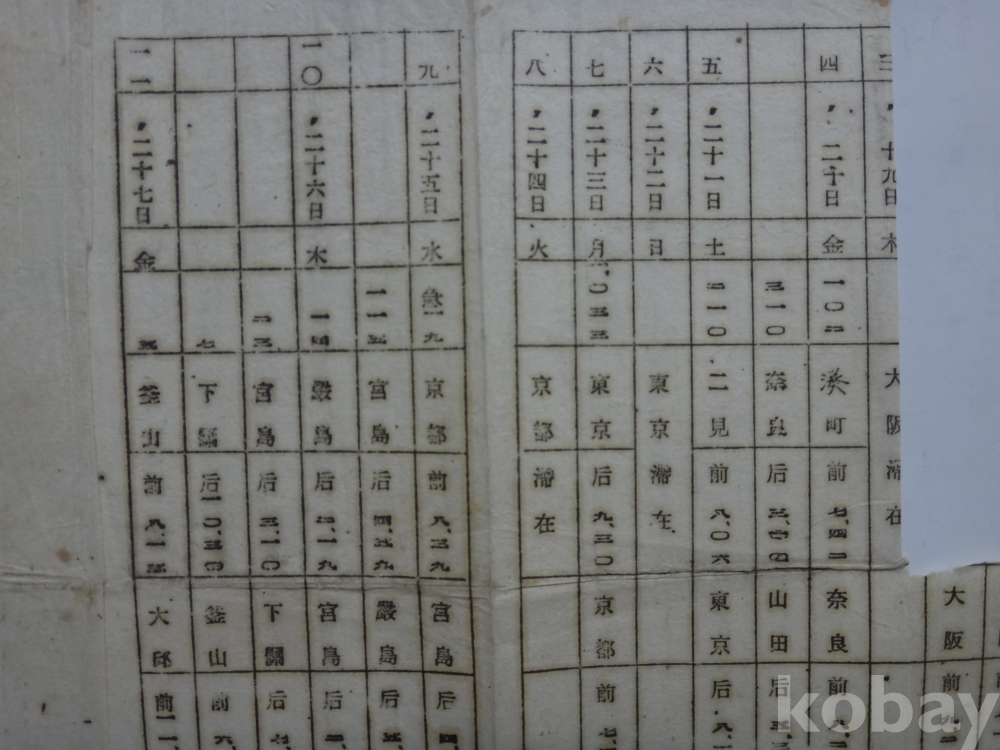 三 〃 十九日 木 大阪滞在 大阪 前
四 〃 二十日 金 一〇二 湊町 前 七、四二 奈良 前
三一〇 奈良 后 山田 后
五 〃 二十一日 土 二一〇 二見 前 八、〇六 東京 后
六 〃 二十二日 日 東京滞在
七 〃 二十三日 月 東京 后 九、三〇 京都 前
八 〃 二十四日 火 京都滞在
九 〃 二十五日 水 急一九 京都 前 八、三九 宮島 后
一一五 宮島 后 四、五九 厳島 后
一〇 〃 二十六日 木 一四 厳島 后 二、一九 宮島 后
二三 宮島 后 三、一〇 下関 后
七 下関 后 一〇、三〇 釜山 前
一一 〃 二十七日 金 釜山 前 八、一五 大邱 前
kobay